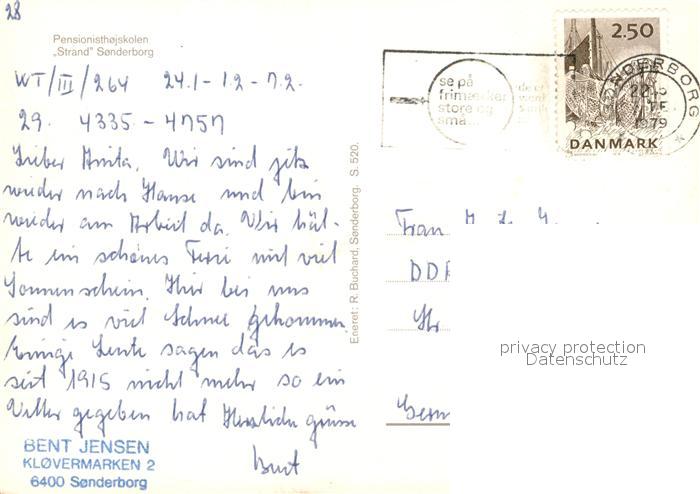 28
Pensionisthøjskolen
„Strand” Sønderborg
WT/III/264 24.1-1.2-7.2.
29. 4335.-4757
Lieber Anita. Wir sind jitz
wieder nach Hause und bin
wieder am Arbeid da. Wir häl-
te ein schönes Ferie mit viel
Sonnenschein. Hir bei uns
sind es viel Schnee gekommen
Einige Leute sagen das es
seit 1915 nicht mehr so ein
Vetter gegeben hat Herzliche grüsse
Bent
BENT JENSEN
KLØVERMARKEN 2
6400 Sønderborg
Eneret: R. Buchard, Sønderborg. S. 520.
se på
frimærker
store og
små...
SØNDERBORG
1979
2.50
DANMARK
Frau
DDR
privacy protection
Datenschutz